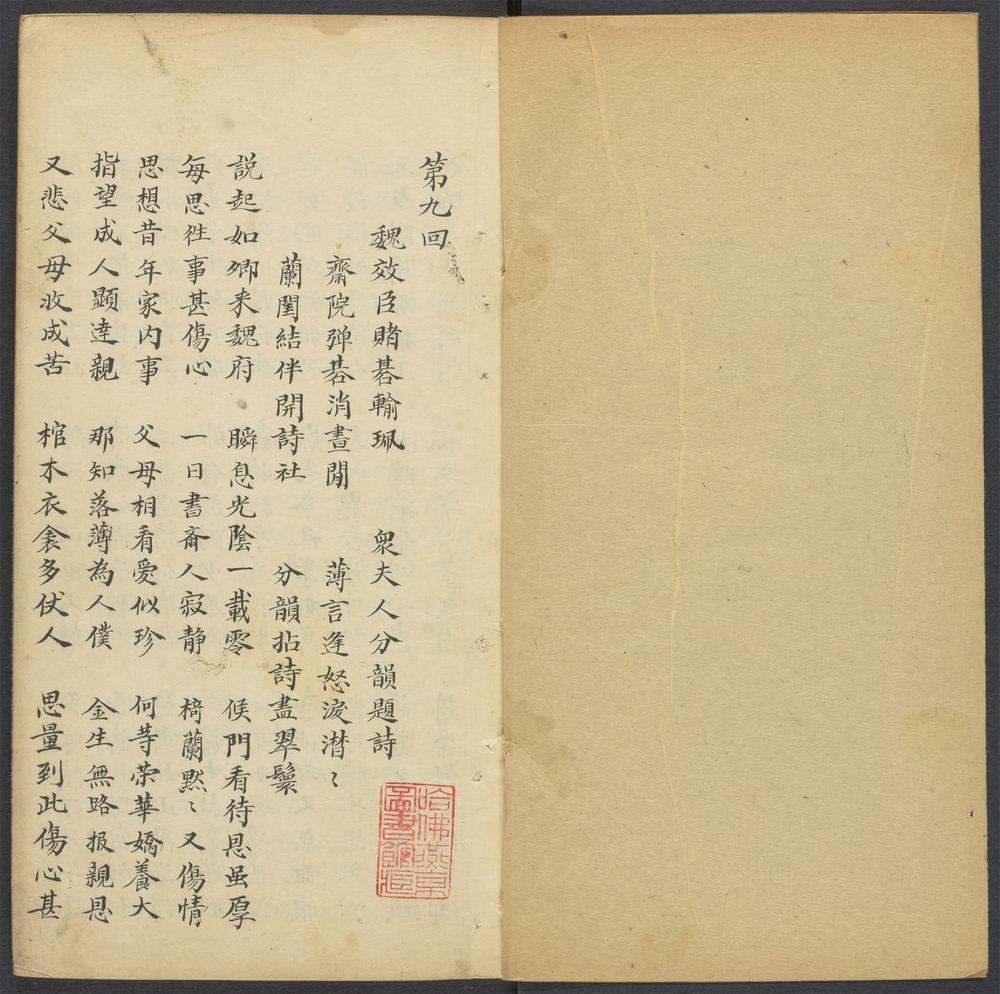 第九回
魏效臣賭碁輸珮　衆夫人分韻題詩
齋院弹碁消晝閒　薄言逢怒淚潸〻
蘭閨結伴開詩社　分韻拈詩盡翠鬟
説起如卿来魏府　瞬息光陰一載零　候門看待恩虽厚
每思徃事甚傷心　一日書斎人寂静　椅蘭默〻又傷情
思想昔年家内事　父母相看愛似珍　何等荣華嬌養大
指望成人顕達親　那知落薄為人僕　金生無路报親恩
又悲父母收成苦　棺木衣衾多伏人　思量到此傷心甚
哈佛燕京
圖書館印